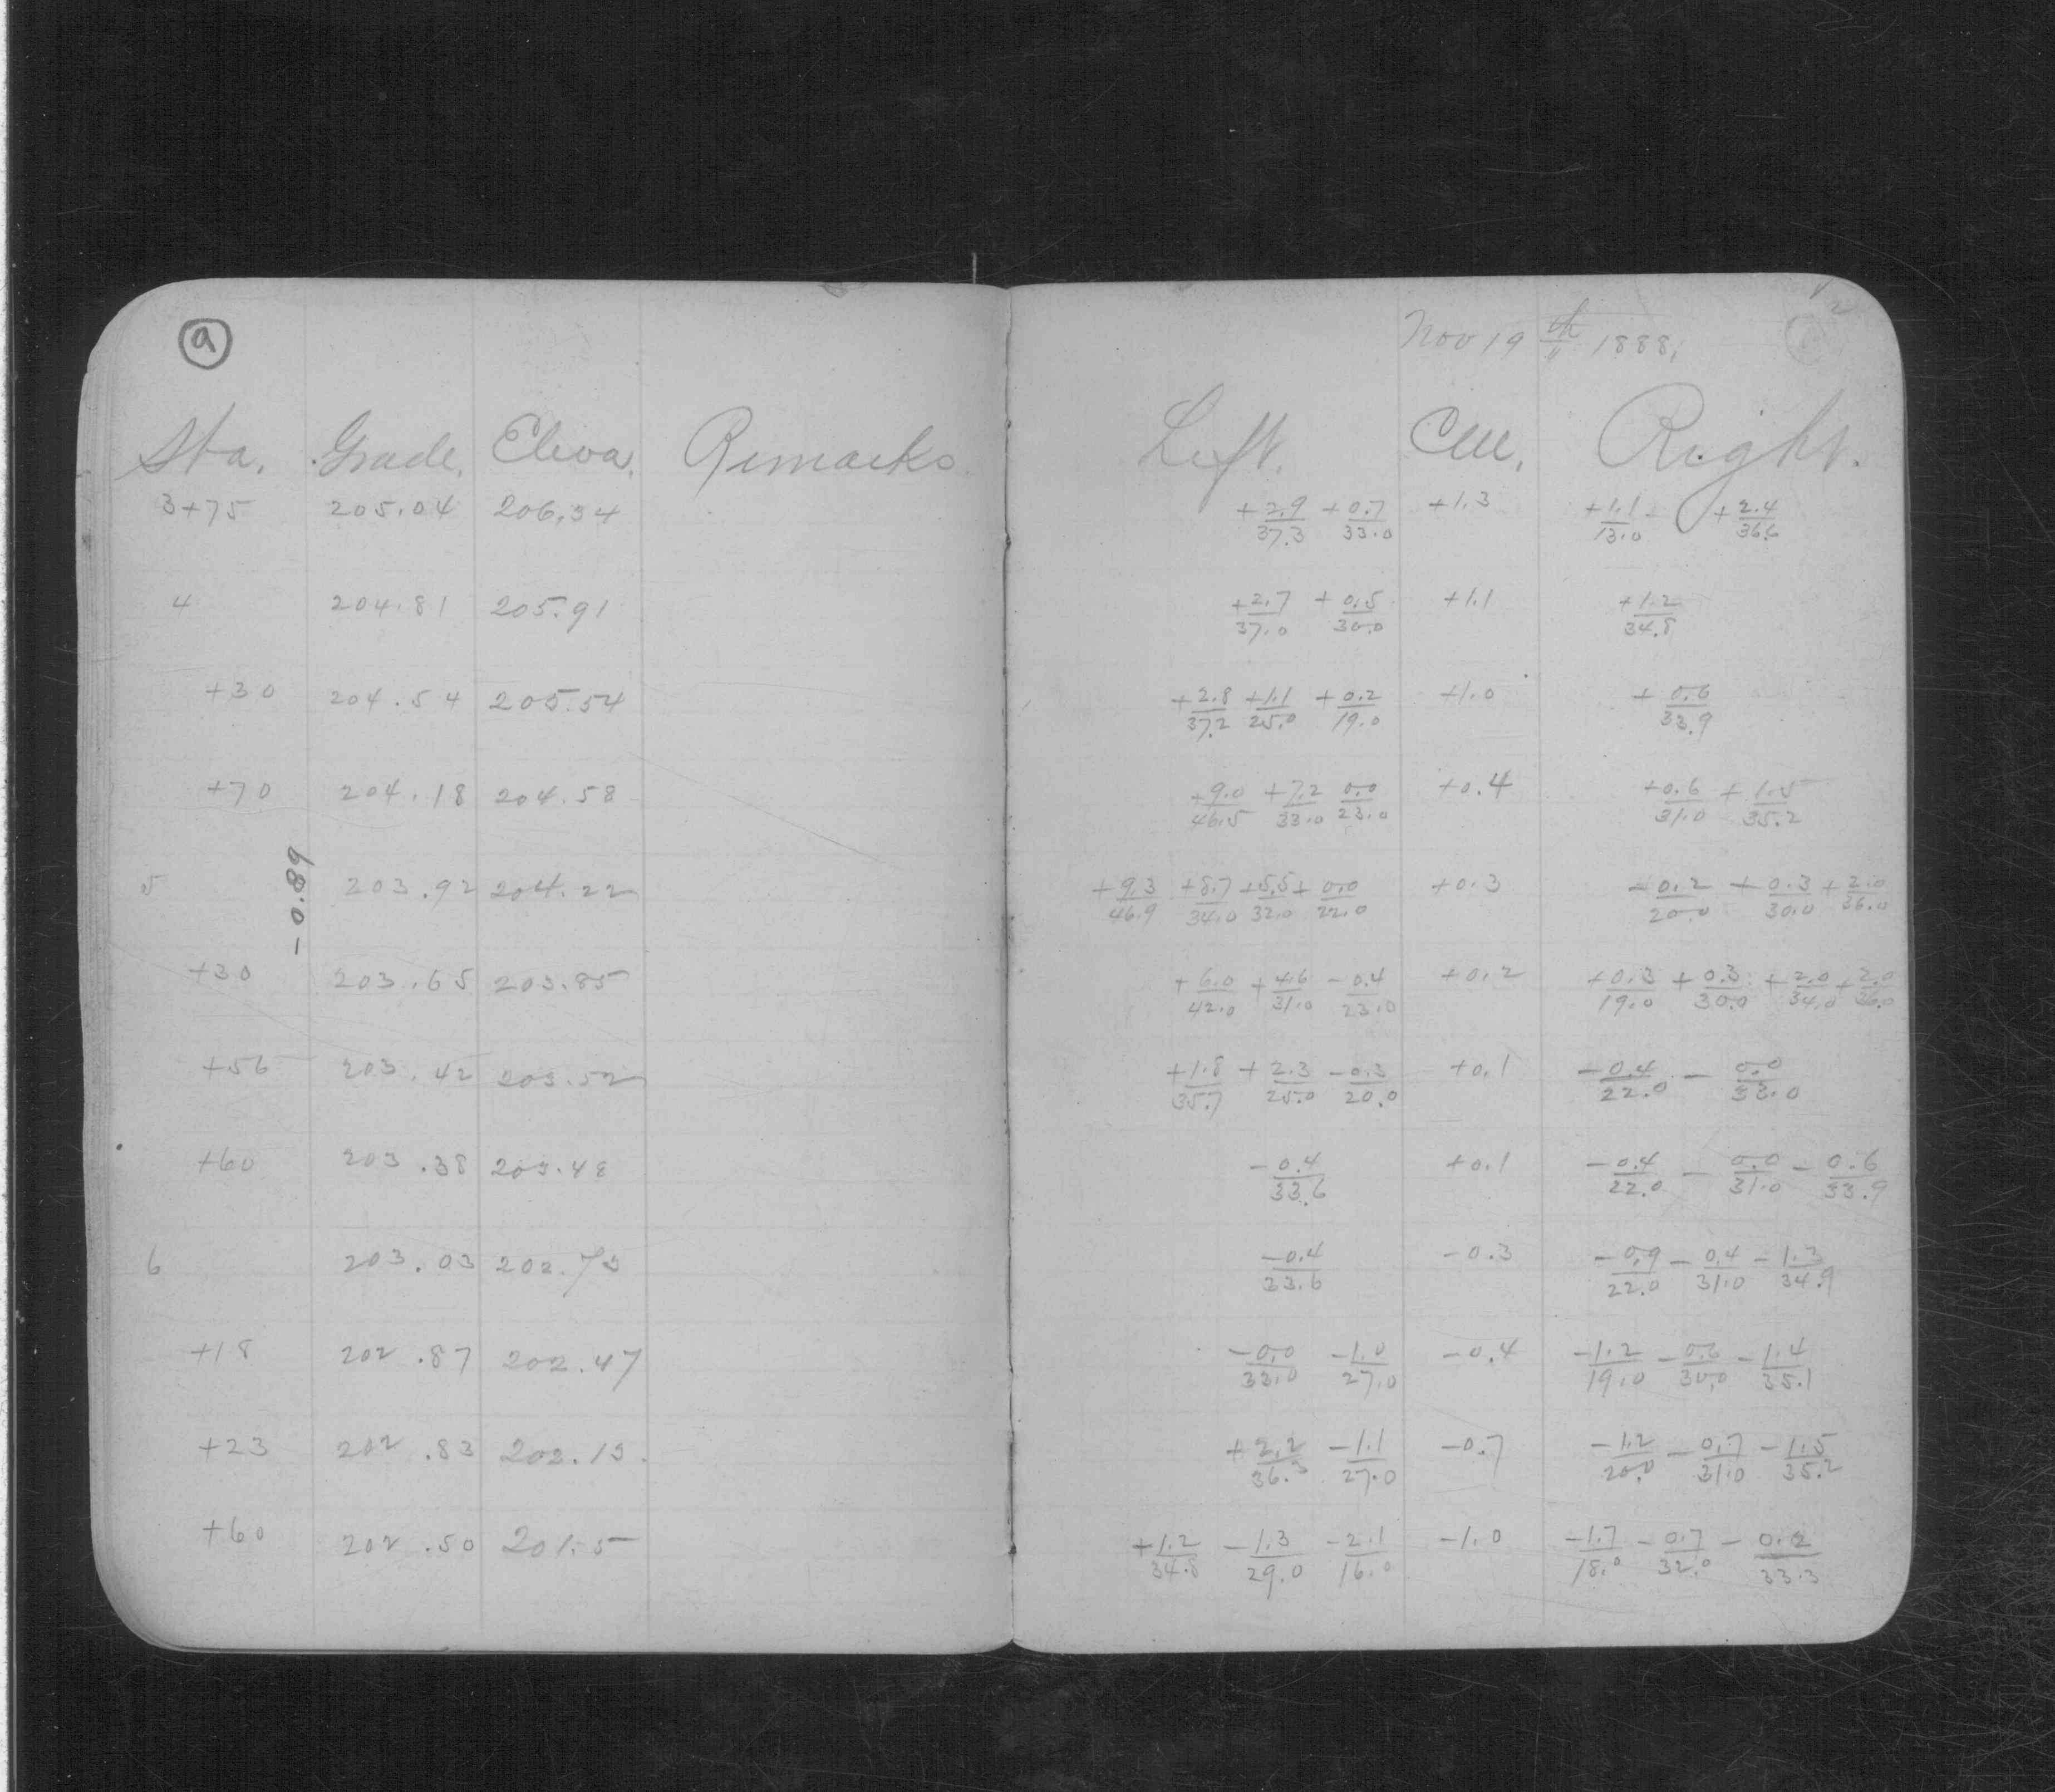 a
Nov 19th 1888,
Sta. Grade. Eleva. Remarks Left. Cen. Right.
3+75 205.04 206.34 +2.9/37.3 +0.7/33.0 +1.3 +1.1/13.0 +2.4/36.6
4 204.81 205.91 +2.7/37.0 +0.5/30.0 +1.1 +1.2/34.8
+30 204.54 205.54 +2.8/37.2 +1.1/25.0 +0.2/19.0 +1.0 +0.6/33.9
+70 204.18 204.58 +9.0/46.5 +7.2/33.0 0.0/23.0 +0.4 +0.6/31.0 +1.5/35.2
-0.89
5 203.92 204.22 +9.3/46.9 +8.7/34.0 +5.5/32.0 +0.0/22.0 +0.3 -0.2/20.0 +0.3/30.0 +2.0/36.0
+30 203.65 203.85 +6.0/42.0 +4.6/31.0 -0.4/23.0 +0.2 +0.3/19.0 +0.3/30.0 +2.0/34.0 +2.0/36.0
+56 203.42 203.52 +1.8/35.7 +2.3/25.0 -0.3/20.0 +0.1 -0.4/22.0 - 0.0/33.0
+60 203.38 203.48 -0.4/33.6 +0.1 -0.4/22.0 - 0.0/31.0 - 0.6/33.9
6 203.03 202.73 -0.4/33.6 -0.3 -0.9/22.0 - 0.4/31.0 - 1.3/34.9
+18 202.87 202.47 -0.0/33.0 -1.0/27.0 -0.4 -1.2/19.0 - 0.6/30.0 - 1.4/35.1
+23 202.83 202.13 +2.2/36.3 -1.1/27.0 -0.7 -1.2/20.0 - 0.7/31.0 - 1.5/35.2
+60 202.50 201.5 +1.2/34.8 -1.3/29.0 -2.1/16.0 -1.0 -1.7/18.0 - 0.7/32.0 - 0.2/33.3